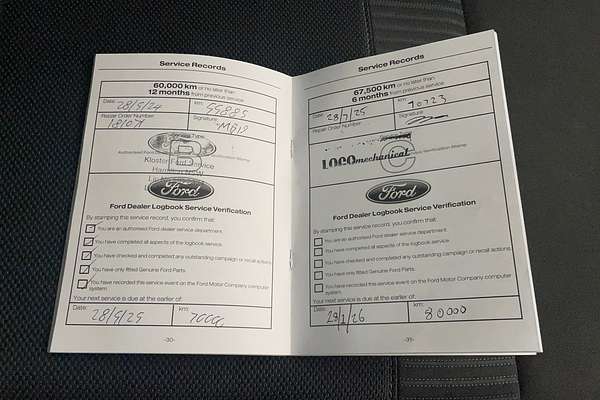 Service Records
60,000 km or no later than
12 months from previous service
Date: 28/9/24 km: 59885
Repair Order Number: Signature:
Service Type:
Kloster Ford Service
Hamilton NSW
Ford
Ford Dealer Logbook Service Verification
By stamping this service record, you confirm that:
You are an authorised Ford dealer service department.
You have completed all aspects of the logbook service.
You have checked and completed any outstanding campaign or recall actions.
You have only fitted Genuine Ford Parts.
You have recorded this service event on the Ford Motor Company computer
system.
Your next service is due at the earlier of:
Date: 28/9/25 km:
-30-
Service Records
67,500 km or no later than
6 months from previous service
Date: 28/7/25 km: 70723
Repair Order Number: Signature:
LOCO mechanical
Ford
Ford Dealer Logbook Service Verification
By stamping this service record, you confirm that:
You are an authorised Ford dealer service department.
You have completed all aspects of the logbook service.
You have checked and completed any outstanding campaign or recall actions.
You have only fitted Genuine Ford Parts.
You have recorded this service event on the Ford Motor Company computer
system.
Your next service is due at the earlier of:
Date: km: 80000
-31-